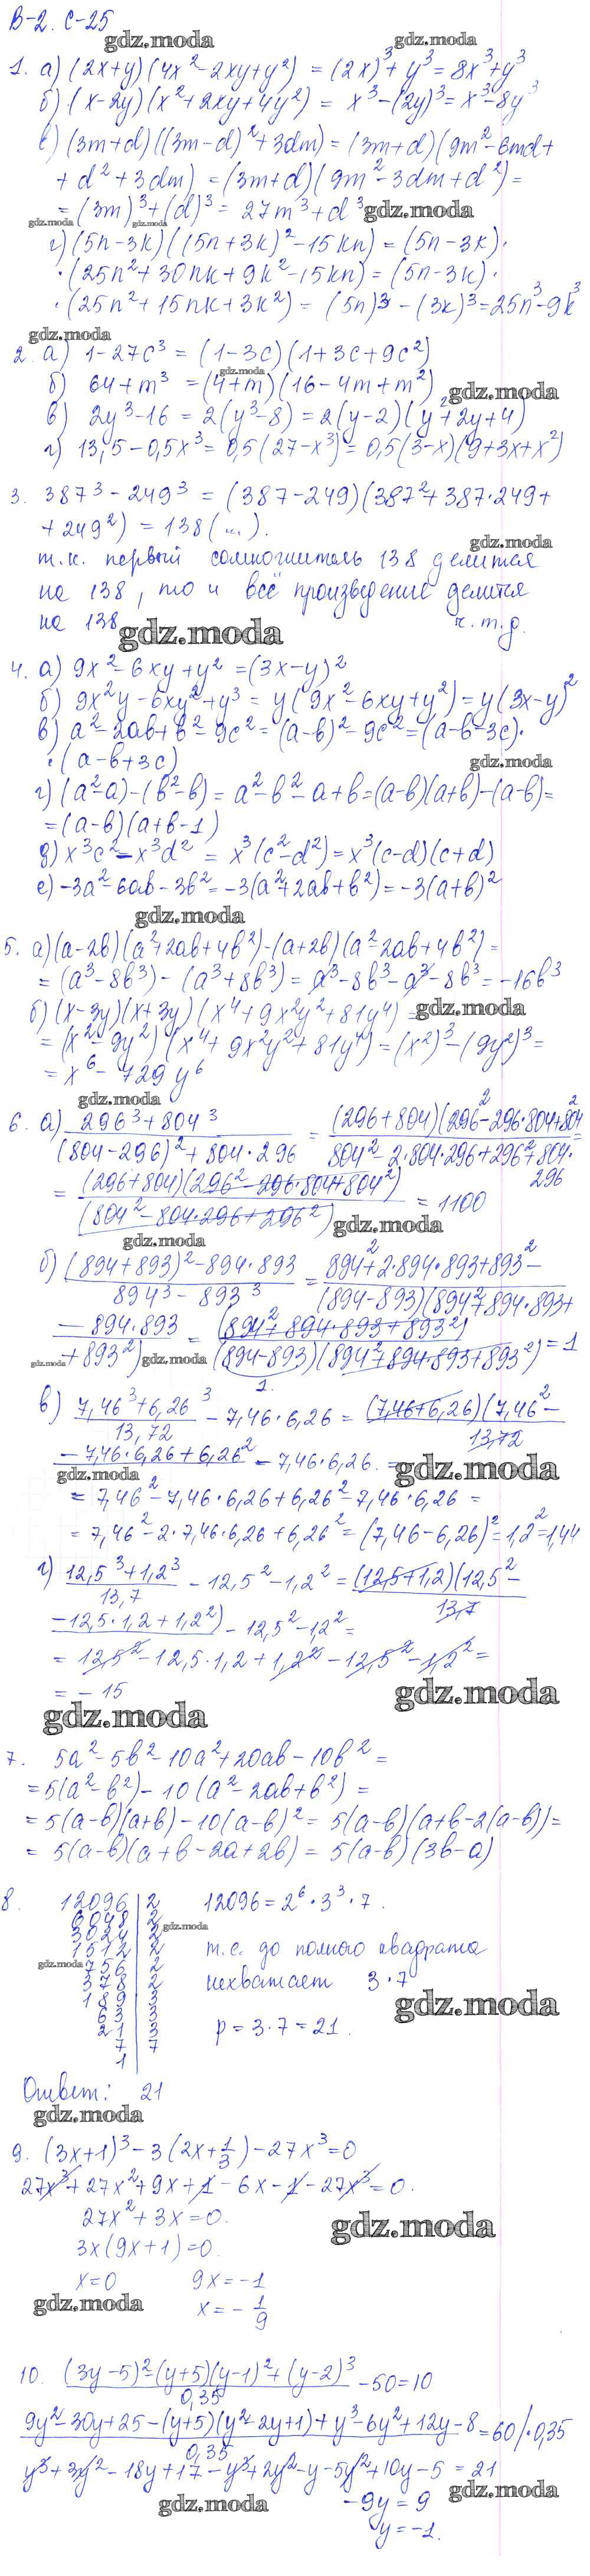 В-2. С-25
gdz.moda
1. а) (2x+y)(4x²-2xy+y²) = (2x)³+y³ = 8x³+y³
б) (x-2y)(x²+2xy+4y²) = x³-(2y)³ = x³-8y³
в) (3m+d)((3m-d)²+3dm) = (3m+d)(9m²-6md+
+d²+3dm) = (3m+d)(9m²-3dm+d²) =
= (3m)³+(d)³ = 27m³+d³
gdz.moda
gdz.moda
gdz.moda
г) (5n-3k)((5n+3k)²-15kn) = (5n-3k)·
·(25n²+30nk+9k²-15kn) = (5n-3k)·
·(25n²+15nk+3k²) = (5n)³-(3k)³=25n³-9k³
gdz.moda
2. а) 1-27c³ = (1-3c)(1+3c+9c²)
gdz.moda
б) 64+m³ = (4+m)(16-4m+m²)
gdz.moda
в) 2y³-16 = 2(y³-8) = 2(y-2)(y²+2y+4)
г) 13,5-0,5x³ = 0,5(27-x³) = 0,5(3-x)(9+3x+x²)
3. 387³-249³ = (387-249)(387²+387·249+
+249²) = 138(...).
gdz.moda
т.к. первый сомножитель 138 делится
на 138, то и всё произведение делится
на 138 ч.т.д.
gdz.moda
4. а) 9x²-6xy+y² = (3x-y)²
б) 9x²y-6xy²+y³ = y(9x²-6xy+y²) = y(3x-y)²
в) a²-2ab+b²-9c² = (a-b)²-9c² = (a-b-3c)·
·(a-b+3c)
gdz.moda
г) (a²-a)-(b²-b) = a²-b²-a+b = (a-b)(a+b)-(a-b) =
= (a-b)(a+b-1)
д) x³c²-x³d² = x³(c²-d²) = x³(c-d)(c+d)
е) -3a²-6ab-3b² = -3(a²+2ab+b²) = -3(a+b)²
gdz.moda
5. а) (a-2b)(a²+2ab+4b²)-(a+2b)(a²-2ab+4b²) =
= (a³-8b³)-(a³+8b³) = a³-8b³-a³-8b³ = -16b³
б) (x-3y)(x+3y)(x⁴+9x²y²+81y⁴) =
gdz.moda
= (x²-9y²)(x⁴+9x²y²+81y⁴) = (x²)³-(9y²)³ =
= x⁶-729y⁶
gdz.moda
6. а) 296³+804³ / (804-296)²+804·296 = (296+804)(296²-296·804+804²) / 804²-2·804·296+296²+804·296 =
= (296+804)(296²-296·804+804²) / (804²-804·296+296²) = 1100
gdz.moda
gdz.moda
б) (894+893)²-894·893 / 894³-893³ = 894²+2·894·893+893²- / (894-893)(894²+894·893+
-894·893 / +893²) = (894²+894·893+893²) / (894-893)(894²+894·893+893²) = 1
gdz.moda
gdz.moda
1.
в) 7,46³+6,26³ / 13,72 - 7,46·6,26 = (7,46+6,26)(7,46²- / 13,72
-7,46·6,26+6,26² - 7,46·6,26. =
gdz.moda
gdz.moda
= 7,46²-7,46·6,26+6,26²-7,46·6,26 =
= 7,46²-2·7,46·6,26+6,26² = (7,46-6,26)² = 1,2² = 1,44
г) 12,5³+1,2³ / 13,7 - 12,5²-1,2² = (12,5+1,2)(12,5²- / 13,7
-12,5·1,2+1,2²) - 12,5²-1,2² =
= 12,5²-12,5·1,2+1,2²-12,5²-1,2² =
= -15
gdz.moda
gdz.moda
7. 5a²-5b²-10a²+20ab-10b² =
= 5(a²-b²)-10(a²-2ab+b²) =
= 5(a-b)(a+b)-10(a-b)² = 5(a-b)(a+b-2(a-b)) =
= 5(a-b)(a+b-2a+2b) = 5(a-b)(3b-a)
8. 12096 | 2 12096 = 2⁶·3³·7.
6048 | 2
gdz.moda
3024 | 2
1512 | 2 т.е. до полного квадрата
gdz.moda
756 | 2
378 | 2 нехватает 3·7
189 | 3
gdz.moda
63 | 3
21 | 3 p = 3·7 = 21.
7 | 7
1
Ответ: 21
gdz.moda
9. (3x+1)³-3(2x+1/3)-27x³=0
27x³+27x²+9x+1-6x-1-27x³=0.
27x²+3x=0.
gdz.moda
3x(9x+1)=0
x=0 9x=-1
gdz.moda
x=-1/9
10. (3y-5)²-(y+5)(y-1)²+(y-2)³ / 0,35 - 50=10
9y²-30y+25-(y+5)(y²-2y+1)+y³-6y²+12y-8 / 0,35 = 60 /·0,35
y³+3y²-18y+17-y³+2y²-y-5y²+10y-5 = 21
gdz.moda
gdz.moda
-9y = 9
y = -1.